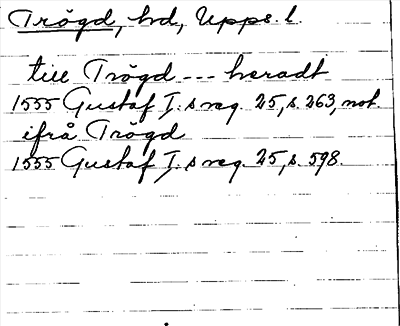 Trögd, hd, Upps. l.
till Trögd --- heradt
1555 Gustaf I:s reg. 25, s. 263, not.
ifrå Trögd
1555 Gustaf I:s reg. 25, s. 598.